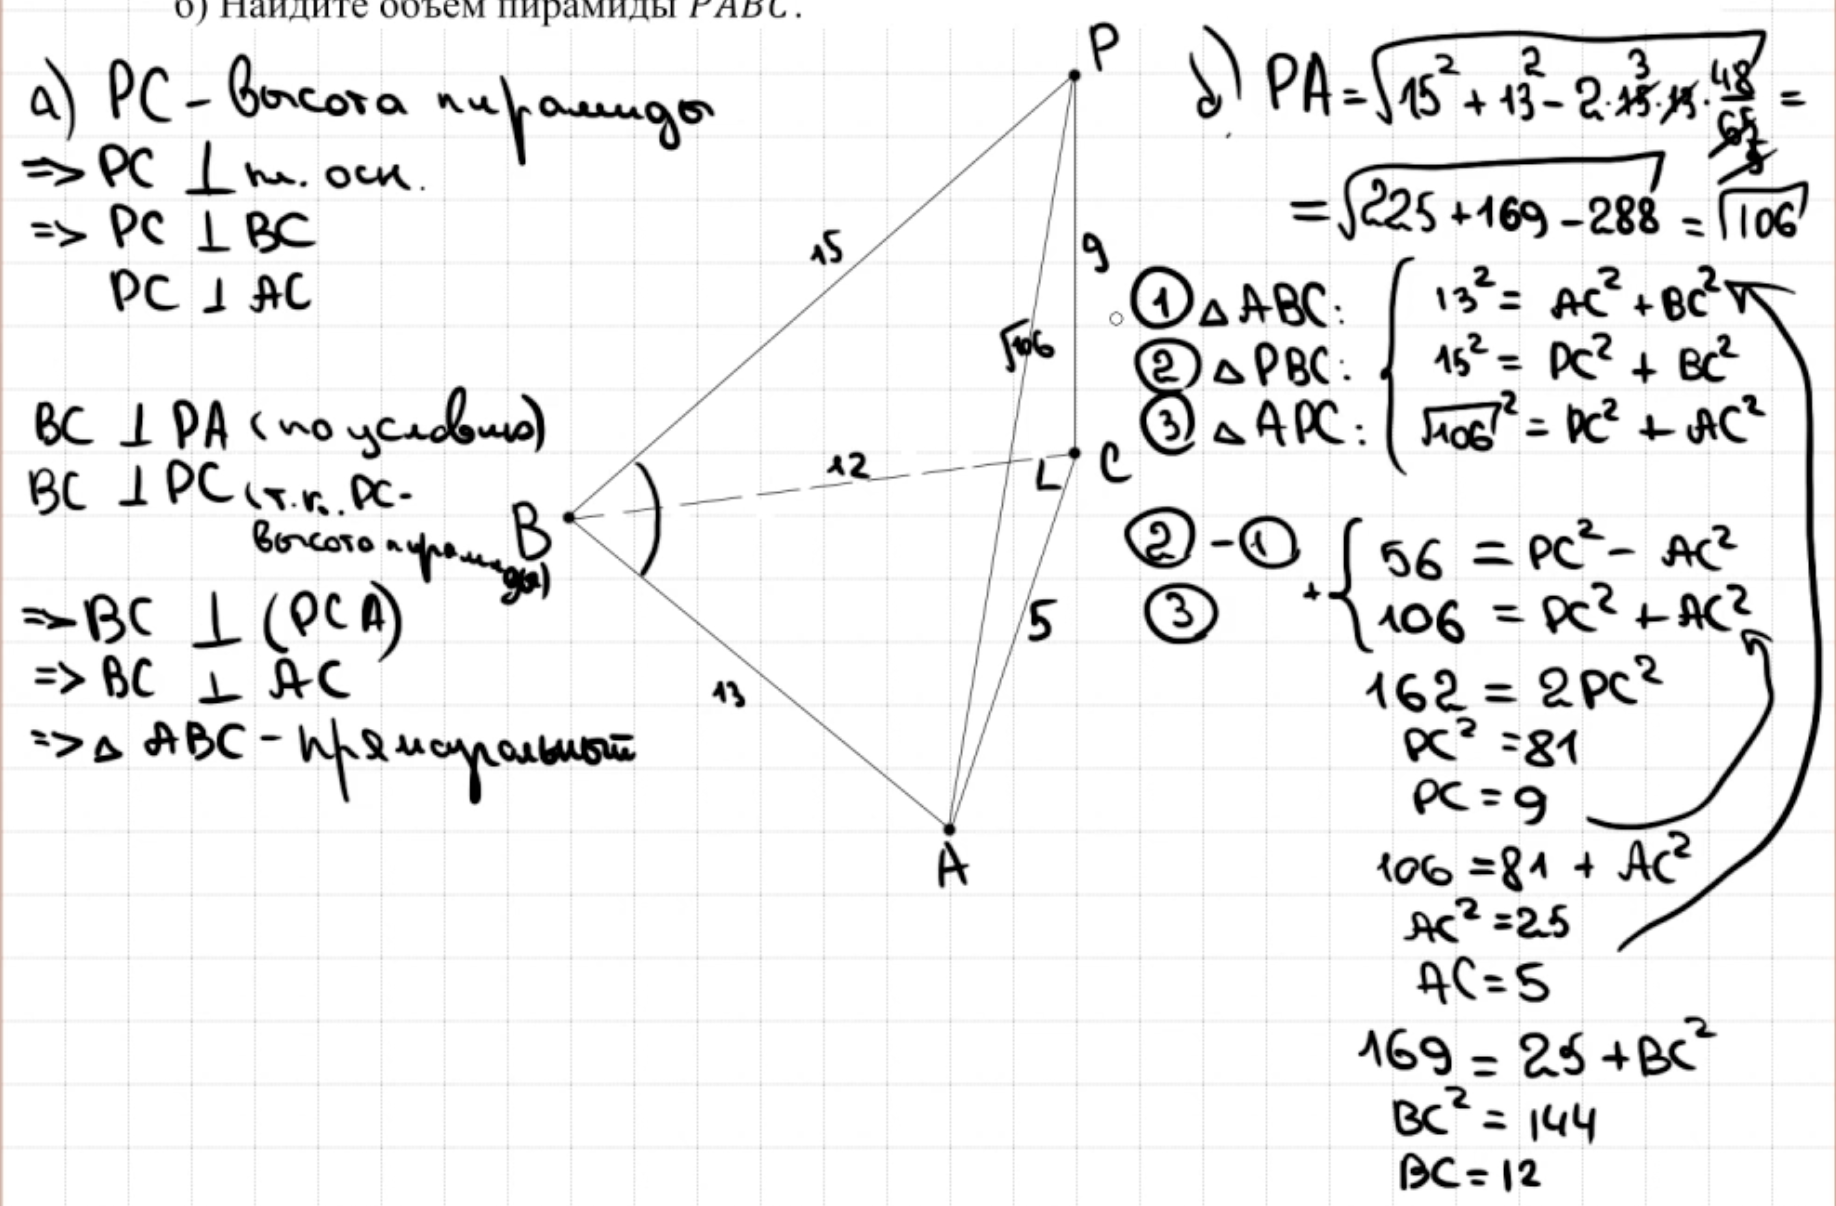 б) Найдите объём пирамиды PABC.
а) PC - высота пирамиды
=> PC ⊥ пл. осн.
=> PC ⊥ BC
PC ⊥ AC
BC ⊥ PA (по условию)
BC ⊥ PC (т.к. PC-
высота пирамиды)
=> BC ⊥ (PCA)
=> BC ⊥ AC
=> △ ABC - прямоугольный
P
15
9
√106
12
C
B
5
13
A
б) PA = √15² + 13² - 2 · 15 · 13 · 48/65 =
3
5
= √225 + 169 - 288 = √106
① △ ABC: 13² = AC² + BC²
② △ PBC: 15² = PC² + BC²
③ △ APC: √106² = PC² + AC²
② - ① 56 = PC² - AC²
③ + 106 = PC² + AC²
162 = 2PC²
PC² = 81
PC = 9
106 = 81 + AC²
AC² = 25
AC = 5
169 = 25 + BC²
BC² = 144
BC = 12